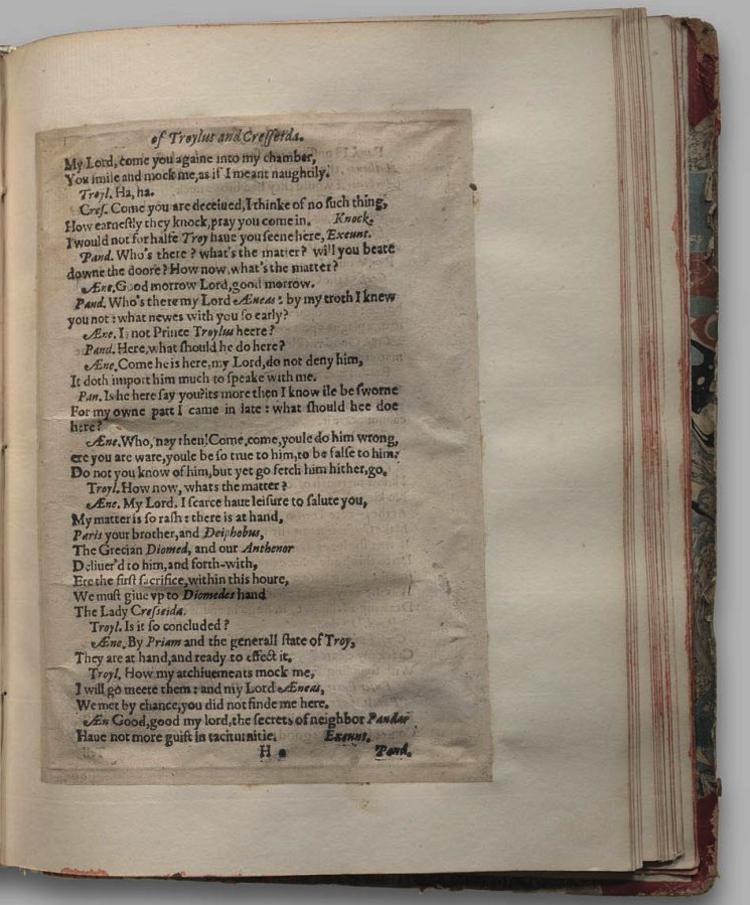 of Troylus and Cresseida.
My Lord, come you againe into my chamber,
You smile and mock me, as if I meant naughtily.
Troyl. Ha, ha.
Cres. Come you are deceiued, I thinke of no such thing,
How earnestly they knock, pray you come in. Knock.
I would not for halfe Troy haue you seene here, Exeunt.
Pand. Who's there? what's the matter? will you beate
downe the doore? How now, what's the matter?
Æne. Good morrow Lord, good morrow.
Pand. Who's there my Lord Æneas: by my troth I knew
you not: what newes with you so early?
Æne. Is not Prince Troylus heere?
Pand. Here, what should he do here?
Æne. Come he is here, my Lord, do not deny him,
It doth import him much to speake with me.
Pan. Is he here say you? its more then I know ile be sworne
For my owne part I came in late: what should hee doe
here?
Æne. Who, nay then! Come, come, youle do him wrong,
ere you are ware, youle be so true to him, to be false to him:
Do not you know of him, but yet go fetch him hither, go.
Troyl. How now, whats the matter?
Æne. My Lord. I scarce haue leisure to salute you,
My matter is so rash: there is at hand,
Paris your brother, and Deiphobus,
The Grecian Diomed, and our Anthenor
Deliuer'd to him, and forth-with,
Ere the first sacrifice, within this houre,
We must giue vp to Diomedes hand
The Lady Cresseida.
Troyl. Is it so concluded?
Æne. By Priam and the generall state of Troy,
They are at hand, and ready to effect it.
Troyl. How my atchiuements mock me,
I will go meete them: and my Lord Æneas,
We met by chance, you did not finde me here.
Æn Good, good my lord, the secrets of neighbor Pandar
Haue not more guift in taciturnitie. Exeunt.
H Pand.